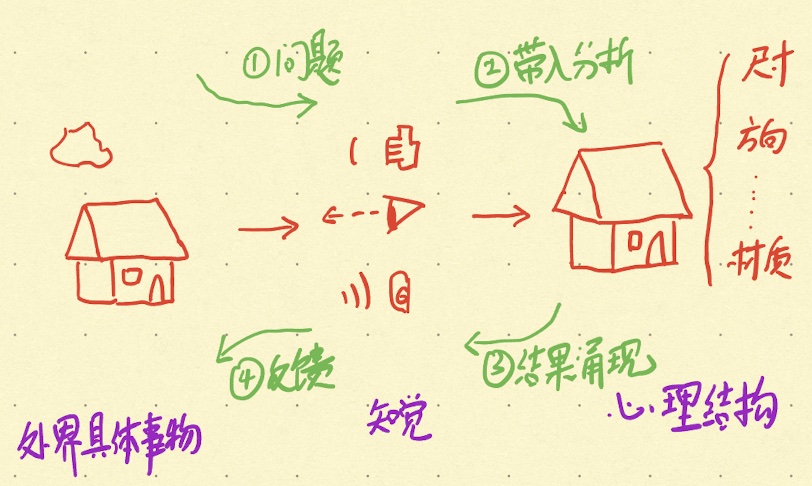 ①问题
②带入分析
尺寸
方向
……
材质
④反馈
③结果涌现
外界具体事物
知觉
心理结构